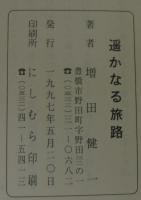 遥かなる旅路
著者　増田健一
豊橋市野田町字野田三の一
☎(〇五三二)三一-〇六八二
発行　一九九七年五月二〇日
印刷所　にしむら印刷
☎(〇五三二)四一-五四一三